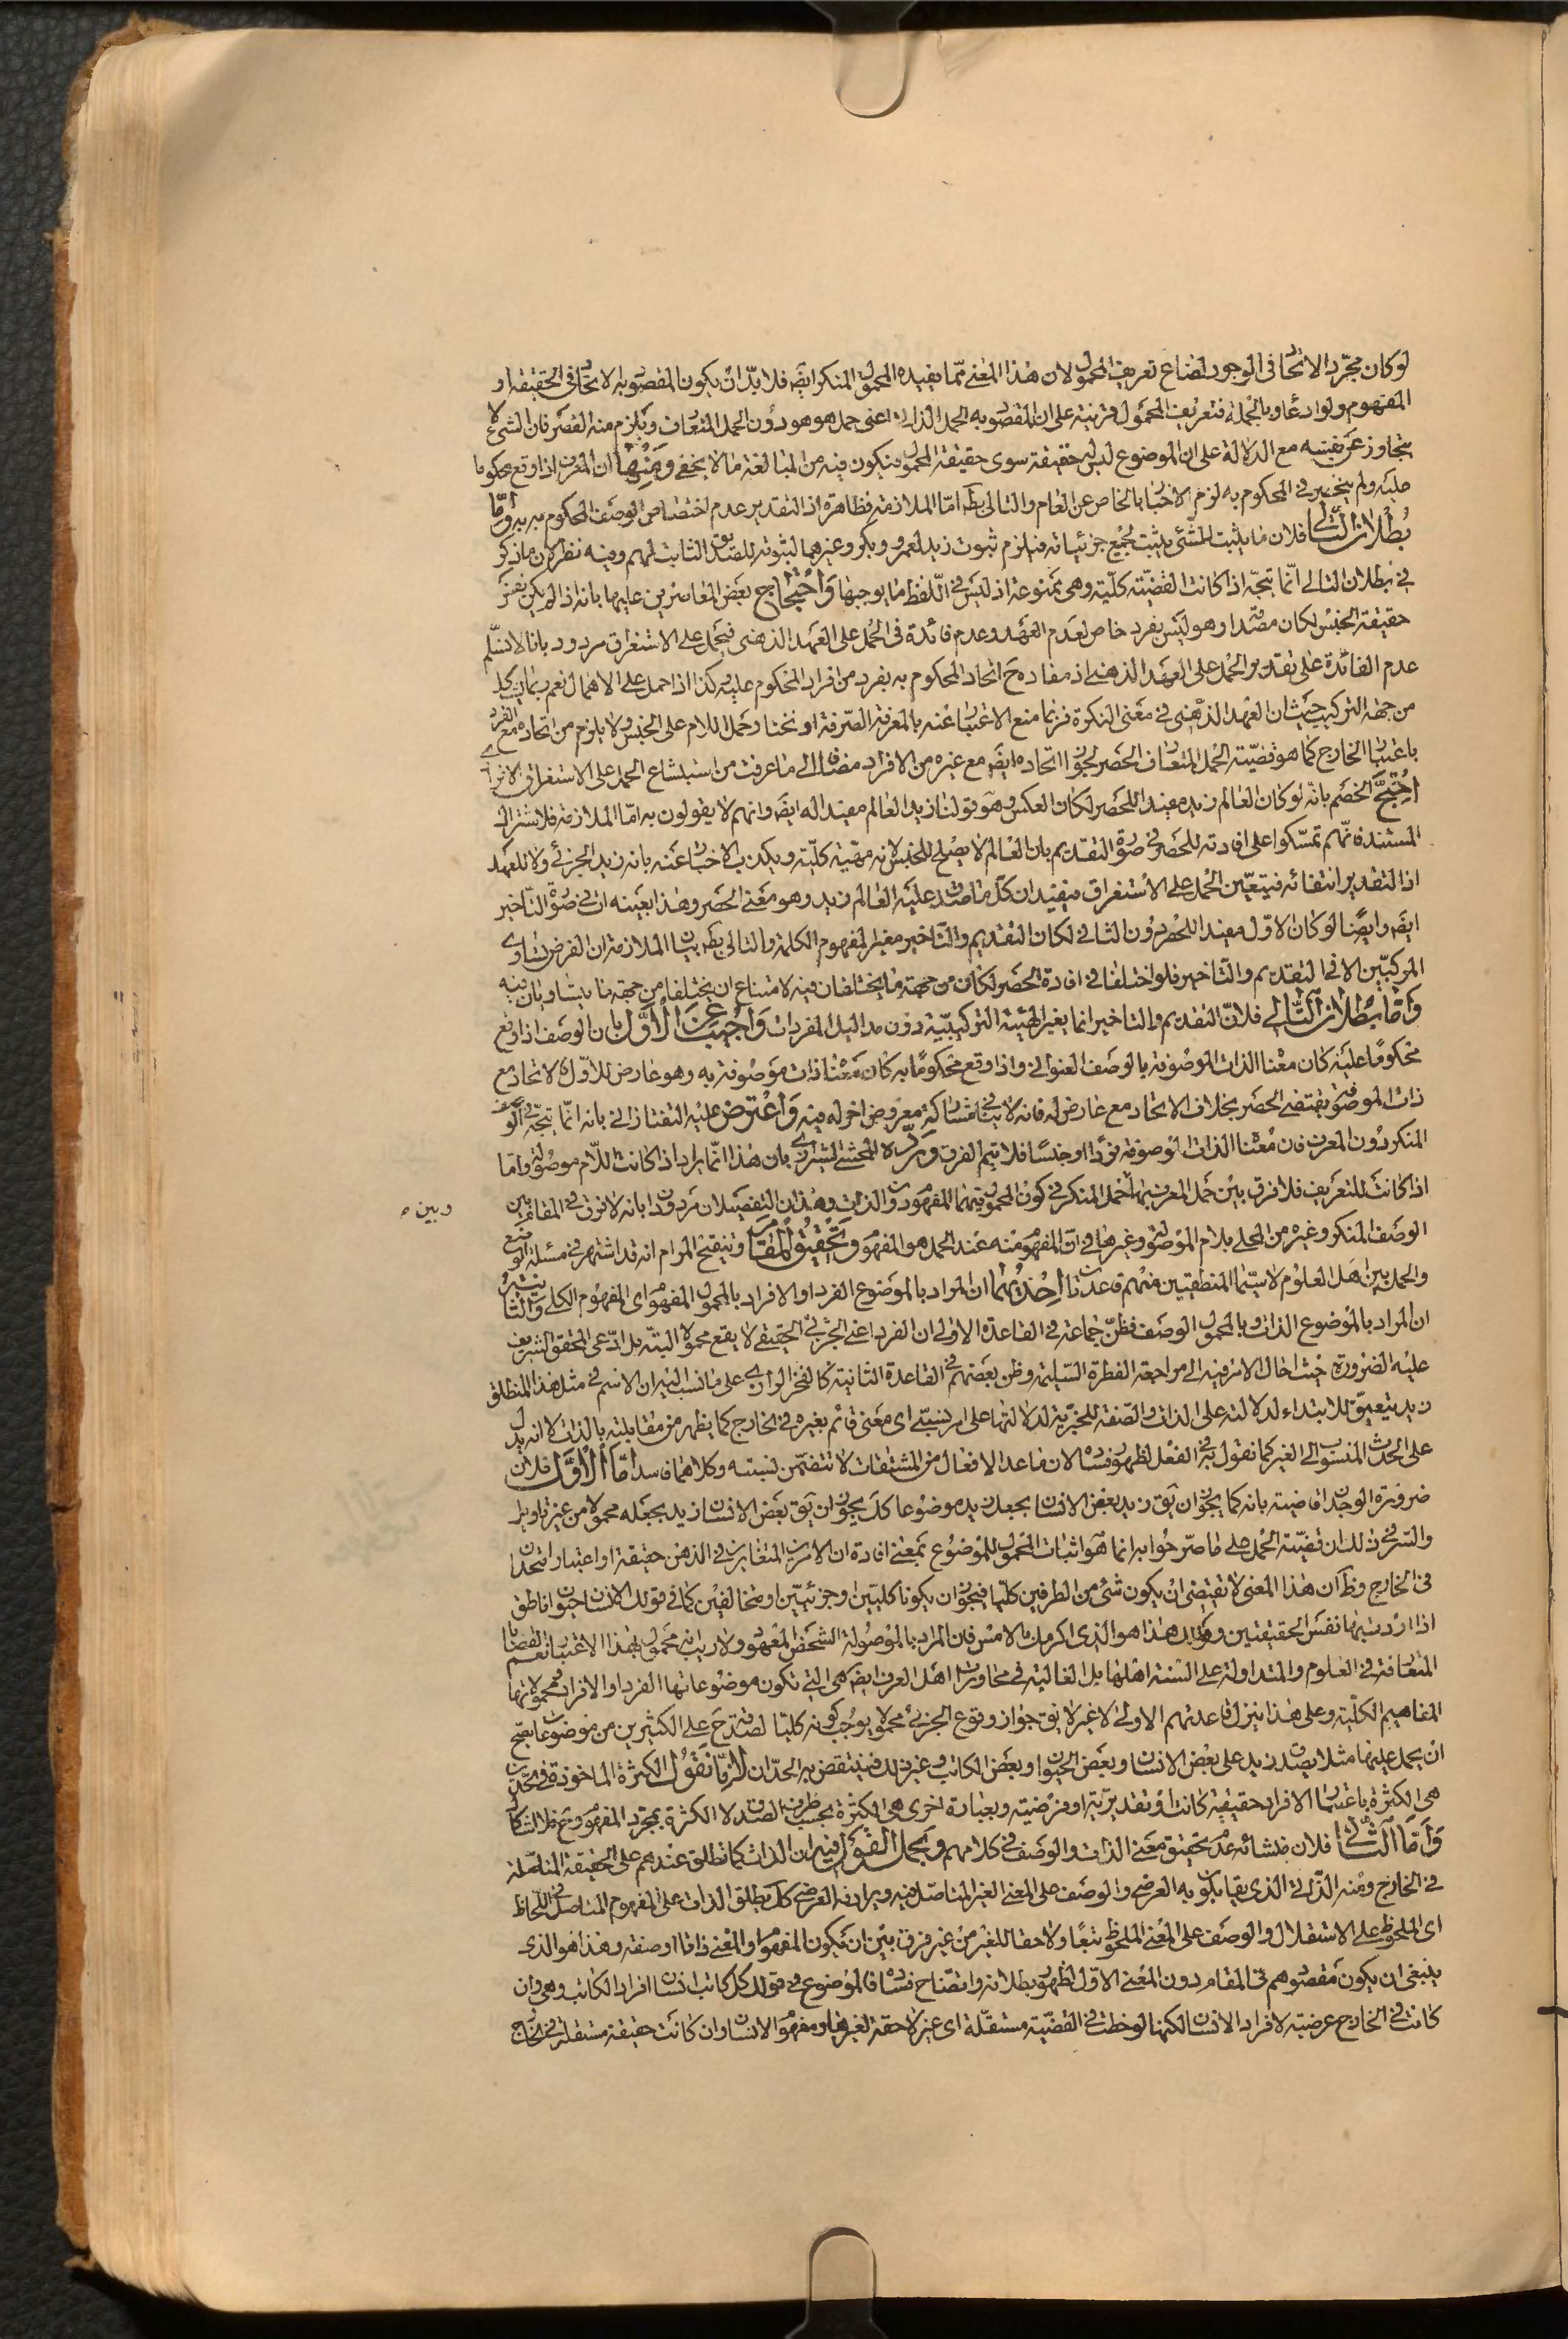 لو كان مجرد الاتحاد فى الوجود لضاع تعريف المحمول لان هذا المعنى مما يفيده المحمول المنكر ايضا فلا بد ان يكون المقصود به الاتحاد فى الحقيقة او
المفهوم ولو ادعاء وبالجملة فتعريف المحمول قرينة على ان المقصود به الحمل الذاتى اعنى حمل هو هو دون الحمل المتعارف ويلزم منه القصر فان الشىء لا
يتجاوز عن نفسه مع الدلالة على ان الموضوع ليس له حقيقة سوى حقيقة المحمول فيكون فيه من المبالغة ما لا يخفى ومنها ان المعرف اذا وقع محكوما
عليه ولم ينحصر فى المحكوم به لزم الاخبار بالخاص عن العام والتالى بط اما الملازمة فظاهرة اذ التقدير عدم اختصاص الوصف المحكوم به به واما
بطلان التالى فلان ما يثبت للشئ يثبت لجميع جزئياته فيلزم ثبوت زيد لعمرو وبكر وغيرهما لثبوته للصديق الثابت لهم وفيه نظر لان ما ذكر
فى بطلان التالى انما يتجه اذا كانت القضية كلية وهى ممنوعة اذ ليس فى اللفظ ما يوجبها واحتجاج بعض المعاصرين عليها بانه اذ لم يكن يعتبر
حقيقة الجنس لكان مفردا وهو ليس بفرد خاص لعدم العهد وعدم فائدة فى الحمل على العهد الذهنى فيحمل على الاستغراق مردود بانا لا نسلم
عدم الفائدة على تقدير الحمل على العهد الذهنى اذ مفاده ح اتحاد المحكوم به بفرد من افراد المحكوم عليه وكذا اذا حمل على الاهمال نعم ربما يشكل
من جهة التركيب حيث ان العهد الذهنى فى معنى النكرة فربما منع الاخبار عنه بالمعرفة الصرفة او نختار حمل اللام على الجنس ولا يلزم من اتحاده مع الفرد
باعتبار الخارج كما هو قضية الحمل المتعارف الحصر لجواز اتحاده ايضا مع غيره من الافراد مضافا الى ما عرفت من استبشاع الحمل على الاستغراق الافرادى
احتج الخصم بانه لو كان العالم زيد مفيدا للحصر لكان العكس وهو قولنا زيد العالم مفيدا له ايضا وانهم لا يقولون به اما الملازمة فلاشتراك
المستند فانهم تمسكوا على افادته للحصر فى صورة التقديم بان العالم لا يصلح للجنس لانه مهية كلية ويكذب الاخبار عنه بانه زيد الجزئى ولا للعهد
اذ التقدير انتفائه فيتعين الحمل على الاستغراق فيفيد ان كل ما صدق عليه العالم زيد وهو معنى الحصر وهذا بعينه ات فى صورة التاخير
ايضا وايضا لو كان الاول مفيدا للحصر دون الثانى لكان التقديم والتاخير مغيرا لمفهوم الكلمة والتالى بط بيان الملازمة ان الفرض تساوى
المركبين الا فى التقديم والتاخير فلو اختلفا فى افادة الحصر لكان من جهة ما يختلفان فيه لامتناع ان يختلفا من جهة ما يتساويان فيه
واما بطلان التالى فلان التقديم والتاخير انما يغير الهيئة التركيبية دون مداليل المفردات واجيب عن الاول بان الوصف اذا وقع
محكوما عليه كان معناه الذات الموصوفة بالوصف العنوانى واذا وقع محكوما به كان معناه ذات موصوفة به وهو عارض للاول والاتحاد مع
ذات الموضوع يقتضى الحصر بخلاف الاتحاد مع عارض له فانه لا ينافى مشاركة معروض اخر له فيه واعترض عليه التفتازانى بانه انما يتجه فى الوصف
المنكر دون المعرف فان معناه الذات الموصوفة فردا او جنسا فلا يتم الفرق ورده المحشى الشيرازى بان هذا انما يراد اذا كانت اللام موصولة واما
اذا كانت للتعريف فلا فرق بين حمل المعرف بها وحمل المنكر فى كون المحمول فيهما المفهوم دون الذات وهذان التفصيلان مردودان بانه لا فرق فى المقام بين
وبين
الوصف المنكر وغيره من المحلى بلام الموصولة وغيرها فى ان المفهوم منه عند الحمل هو المفهوم وتحقيق المقام وتنقيح المرام انه قد اشتهر فى مسئلة الوضع
والحمل بين اهل العلوم لا سيما المنطقيين منهم قاعدتان احديهما ان المراد بالموضوع الفرد او الافراد بالمحمول المفهوم اى المفهوم الكلى والثانية
ان المراد بالموضوع الذات وبالمحمول الوصف فظن جماعة فى القاعدة الاولى ان الفرد اعنى الجزئى الحقيقى لا يقع محمولا البتة بل ادعى المحقق الشريف
عليه الضرورة حيث احال الامر فيه الى مراجعة الفطرة السليمة وظن بعضهم فى القاعدة الثانية كالفخر الرازى على ما نسب اليه ان الاسم فى مثل هذا المنطلق
زيد يتعين للابتداء لدلالته على الذات والصفة للخبرية لدلالتها على امر نسبى اى معنى قائم بغيره فى الخارج كما يظهر من مقابلته بالذات لا انه يدل
على الحدث المنسوب الى الغير كما نقول به فى الفعل لظهور فساده لان ما عدا الافعال من المشتقات لا تتضمن نسبته وكلاهما فاسد اما الاول فلان
ضرورة الوجدان قاضية بانه كما يجوز ان يق زيد بعض الانسان بجعل زيد موضوعا كك يجوز ان يق بعض الانسان زيد بجعله محمولا من غير تاويل
والسر فى ذلك ان قضية الحمل على ما صرحوا به انما هو اثبات المحمول للموضوع بمعنى افادة ان الامرين المتغايرين فى الذهن حقيقة او اعتبارا متحدان
فى الخارج وظ ان هذا المعنى لا يقتضى ان يكون شئ من الطرفين كليا فيجوز ان يكونا كليين وجزئيين ومتخالفين كما فى قولك الانسان حيوان ناطق
اذا اردت بهما نفس الحقيقتين وقولك هذا هو الذى اكرمك بالامس فان المراد بالموصولة الشخص المعهود ولا ريب انه محمول بهذا الاعتبار نعم القضايا
المتعارفة فى العلوم والمتداولة على السنة اهلها بل الغالبة فى محاورات اهل العرف ايضا هى التى تكون موضوعاتها الفرد او الافراد ومحمولاتها
المفاهيم الكلية وعلى هذا ينزل قاعدتهم الاولى لا غير لا يق جواز وقوع الجزئى محمولا يوجب كونه كليا لصدقه ح على الكثيرين من موضوعات يصح
ان يحمل عليها مثلا يصدق زيد على بعض الانسان وبعض الحيوان وبعض الكاتب وغير ذلك فينتقض به الحدان لانا نقول الكثرة الماخوذة فى الحدين
هى الكثرة باعتبار الافراد حقيقية كانت او تقديرية او فرضية وبعبارة اخرى هى الكثرة بحسب ظرف الصدق لا الكثرة بمجرد المفهوم ومع فلا اشكال
واما الثانى فلان منشائه عدم تحقيق معنى الذات والوصف فى كلامهم ومجمل القول فيه ان الذات كما تطلق عندهم على الحقيقة المتاصلة
فى الخارج ومنه الذاتى الذى يقابل به العرضى والوصف على المعنى الغير المتاصل فيه ويرادفه العرضى كك يطلق الذات على المفهوم المتاصل فى اللحاظ
اى الملحوظ على الاستقلال والوصف على المعنى الملحوظ تبعا ولاحقا للغير من غير فرق بين ان يكون المفهوم او المعنى ذاتا او صفة وهذا هو الذى
ينبغى ان يكون مقصودهم فى المقام دون المعنى الاول لظهور بطلانه واتضاح فساده فالموضوع فى قولك كل كاتب انسان افراد الكاتب وهى وان
كانت فى الخارج عرضية لافراد الانسان لكنها لوحظت فى القضية مستقلة اى غير لاحقة لغيرها ومفهوم الانسان وان كانت حقيقة مستقلة فى الخارج